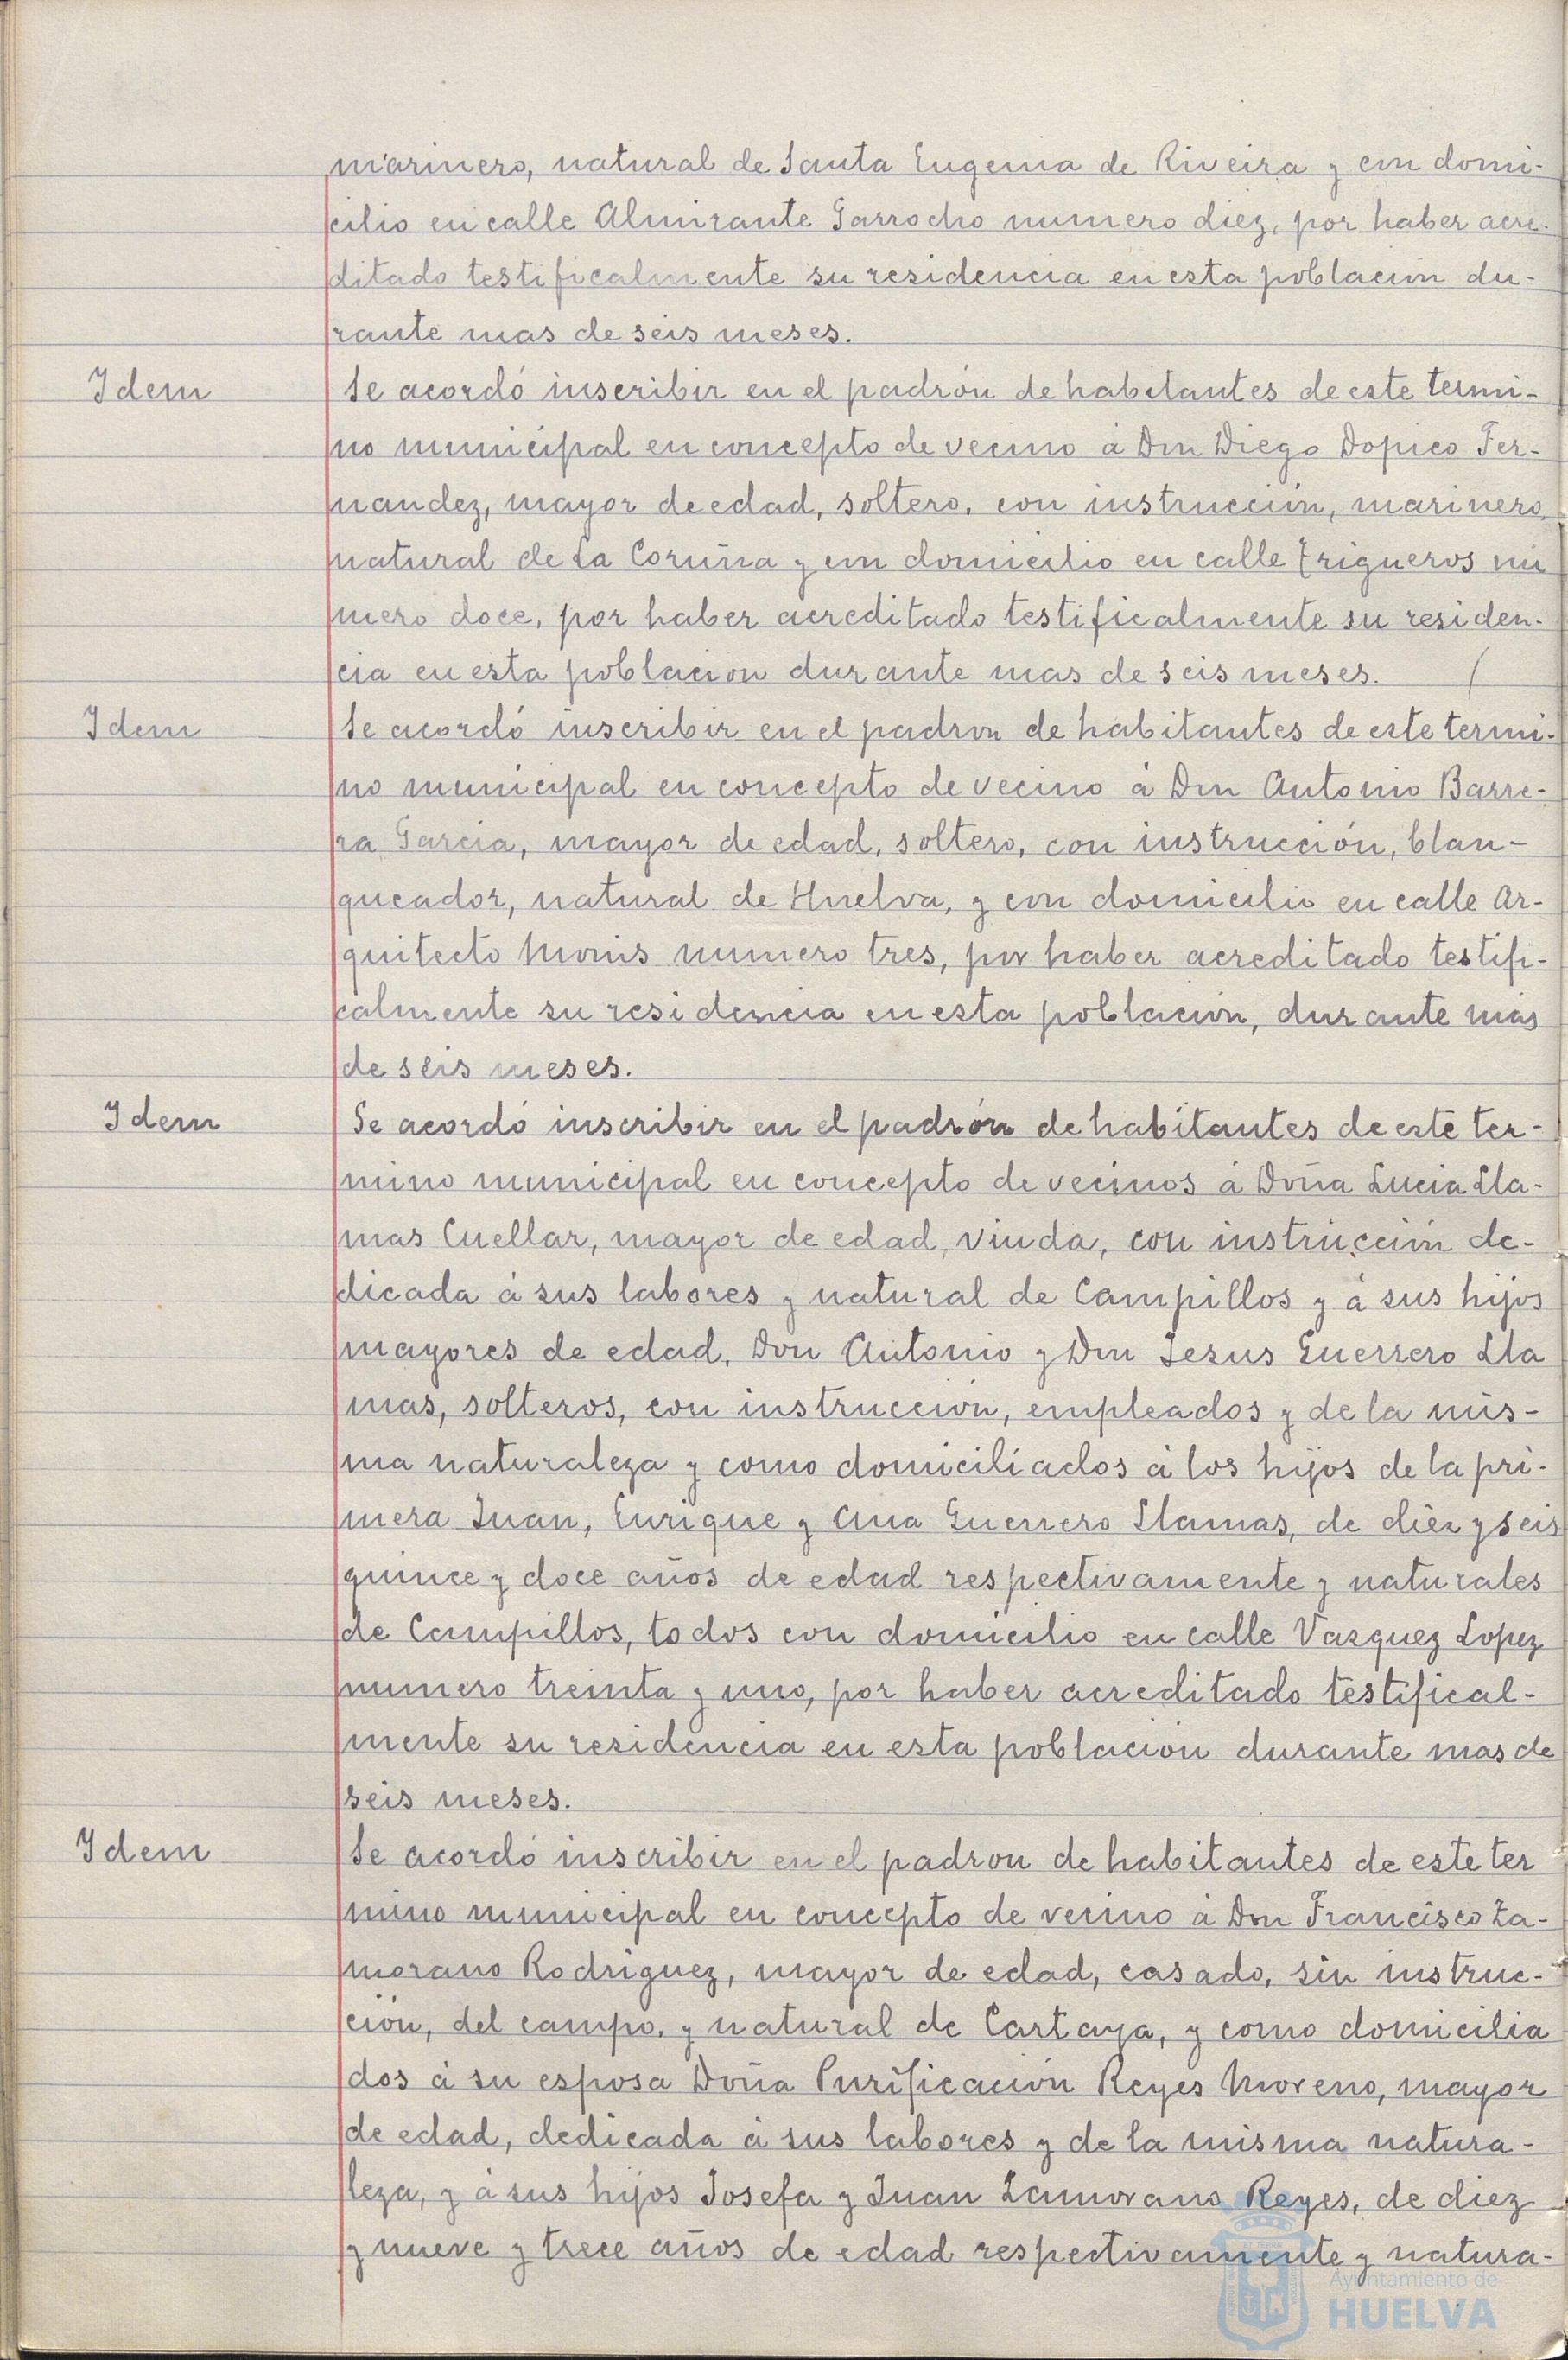 marinero, natural de Santa Eugenia de Riveira y con domi-
cilio en calle Almirante Garrocho numero diez, por haber acre-
ditado testificalmente su residencia en esta poblacion du-
rante mas de seis meses.
Idem
Se acordó inscribir en el padrón de habitantes de este termi-
no municipal en concepto de vecino á Don Diego Dopico Fer-
nandez, mayor de edad, soltero, con instrucción, marinero
natural de La Coruña y con domicilio en calle Trigueros nu
mero doce, por haber acreditado testificalmente su residen-
cia en esta poblacion durante mas de seis meses. /
Idem
Se acordó inscribir en el padron de habitantes de este termi-
no municipal en concepto de vecino á Don Antonio Barre-
ra Garcia, mayor de edad, soltero, con instrucción, blan-
queador, natural de Huelva, y con domicilio en calle Ar-
quitecto Monis numero tres, por haber acreditado testifi-
calmente su residencia en esta población, durante más
de seis meses.
Idem
Se acordó inscribir en el padrón de habitantes de este ter-
mino municipal en concepto de vecinos á Doña Lucia Lla-
mas Cuellar, mayor de edad, viuda, con instrucción de-
dicada á sus labores y natural de Campillos y á sus hijos
mayores de edad, Don Antonio y Don Jesus Guerrero Lla
mas, solteros, con instrucción, empleados y de la mis-
ma naturaleza y como domiciliados á los hijos de la pri-
mera Juan, Enrique y Ana Guerrero Llamas, de diez y seis
quince y doce años de edad respectivamente y naturales
de Campillos, todos con domicilio en calle Vazquez Lopez
numero treinta y uno, por haber acreditado testifical-
mente su residencia en esta población durante mas de
seis meses.
Idem
Se acordó inscribir en el padron de habitantes de este ter
mino municipal en concepto de vecino á Don Francisco Za-
morano Rodriguez, mayor de edad, casado, sin instruc-
ción, del campo, y natural de Cartaya, y como domicilia
dos á su esposa Doña Purificación Reyes Moreno, mayor
de edad, dedicada á sus labores y de la misma natura-
leza, y á sus hijos Josefa y Juan Zamorano Reyes, de diez
y nueve y trece años de edad respectivamente y natura-
Ayuntamiento de
HUELVA